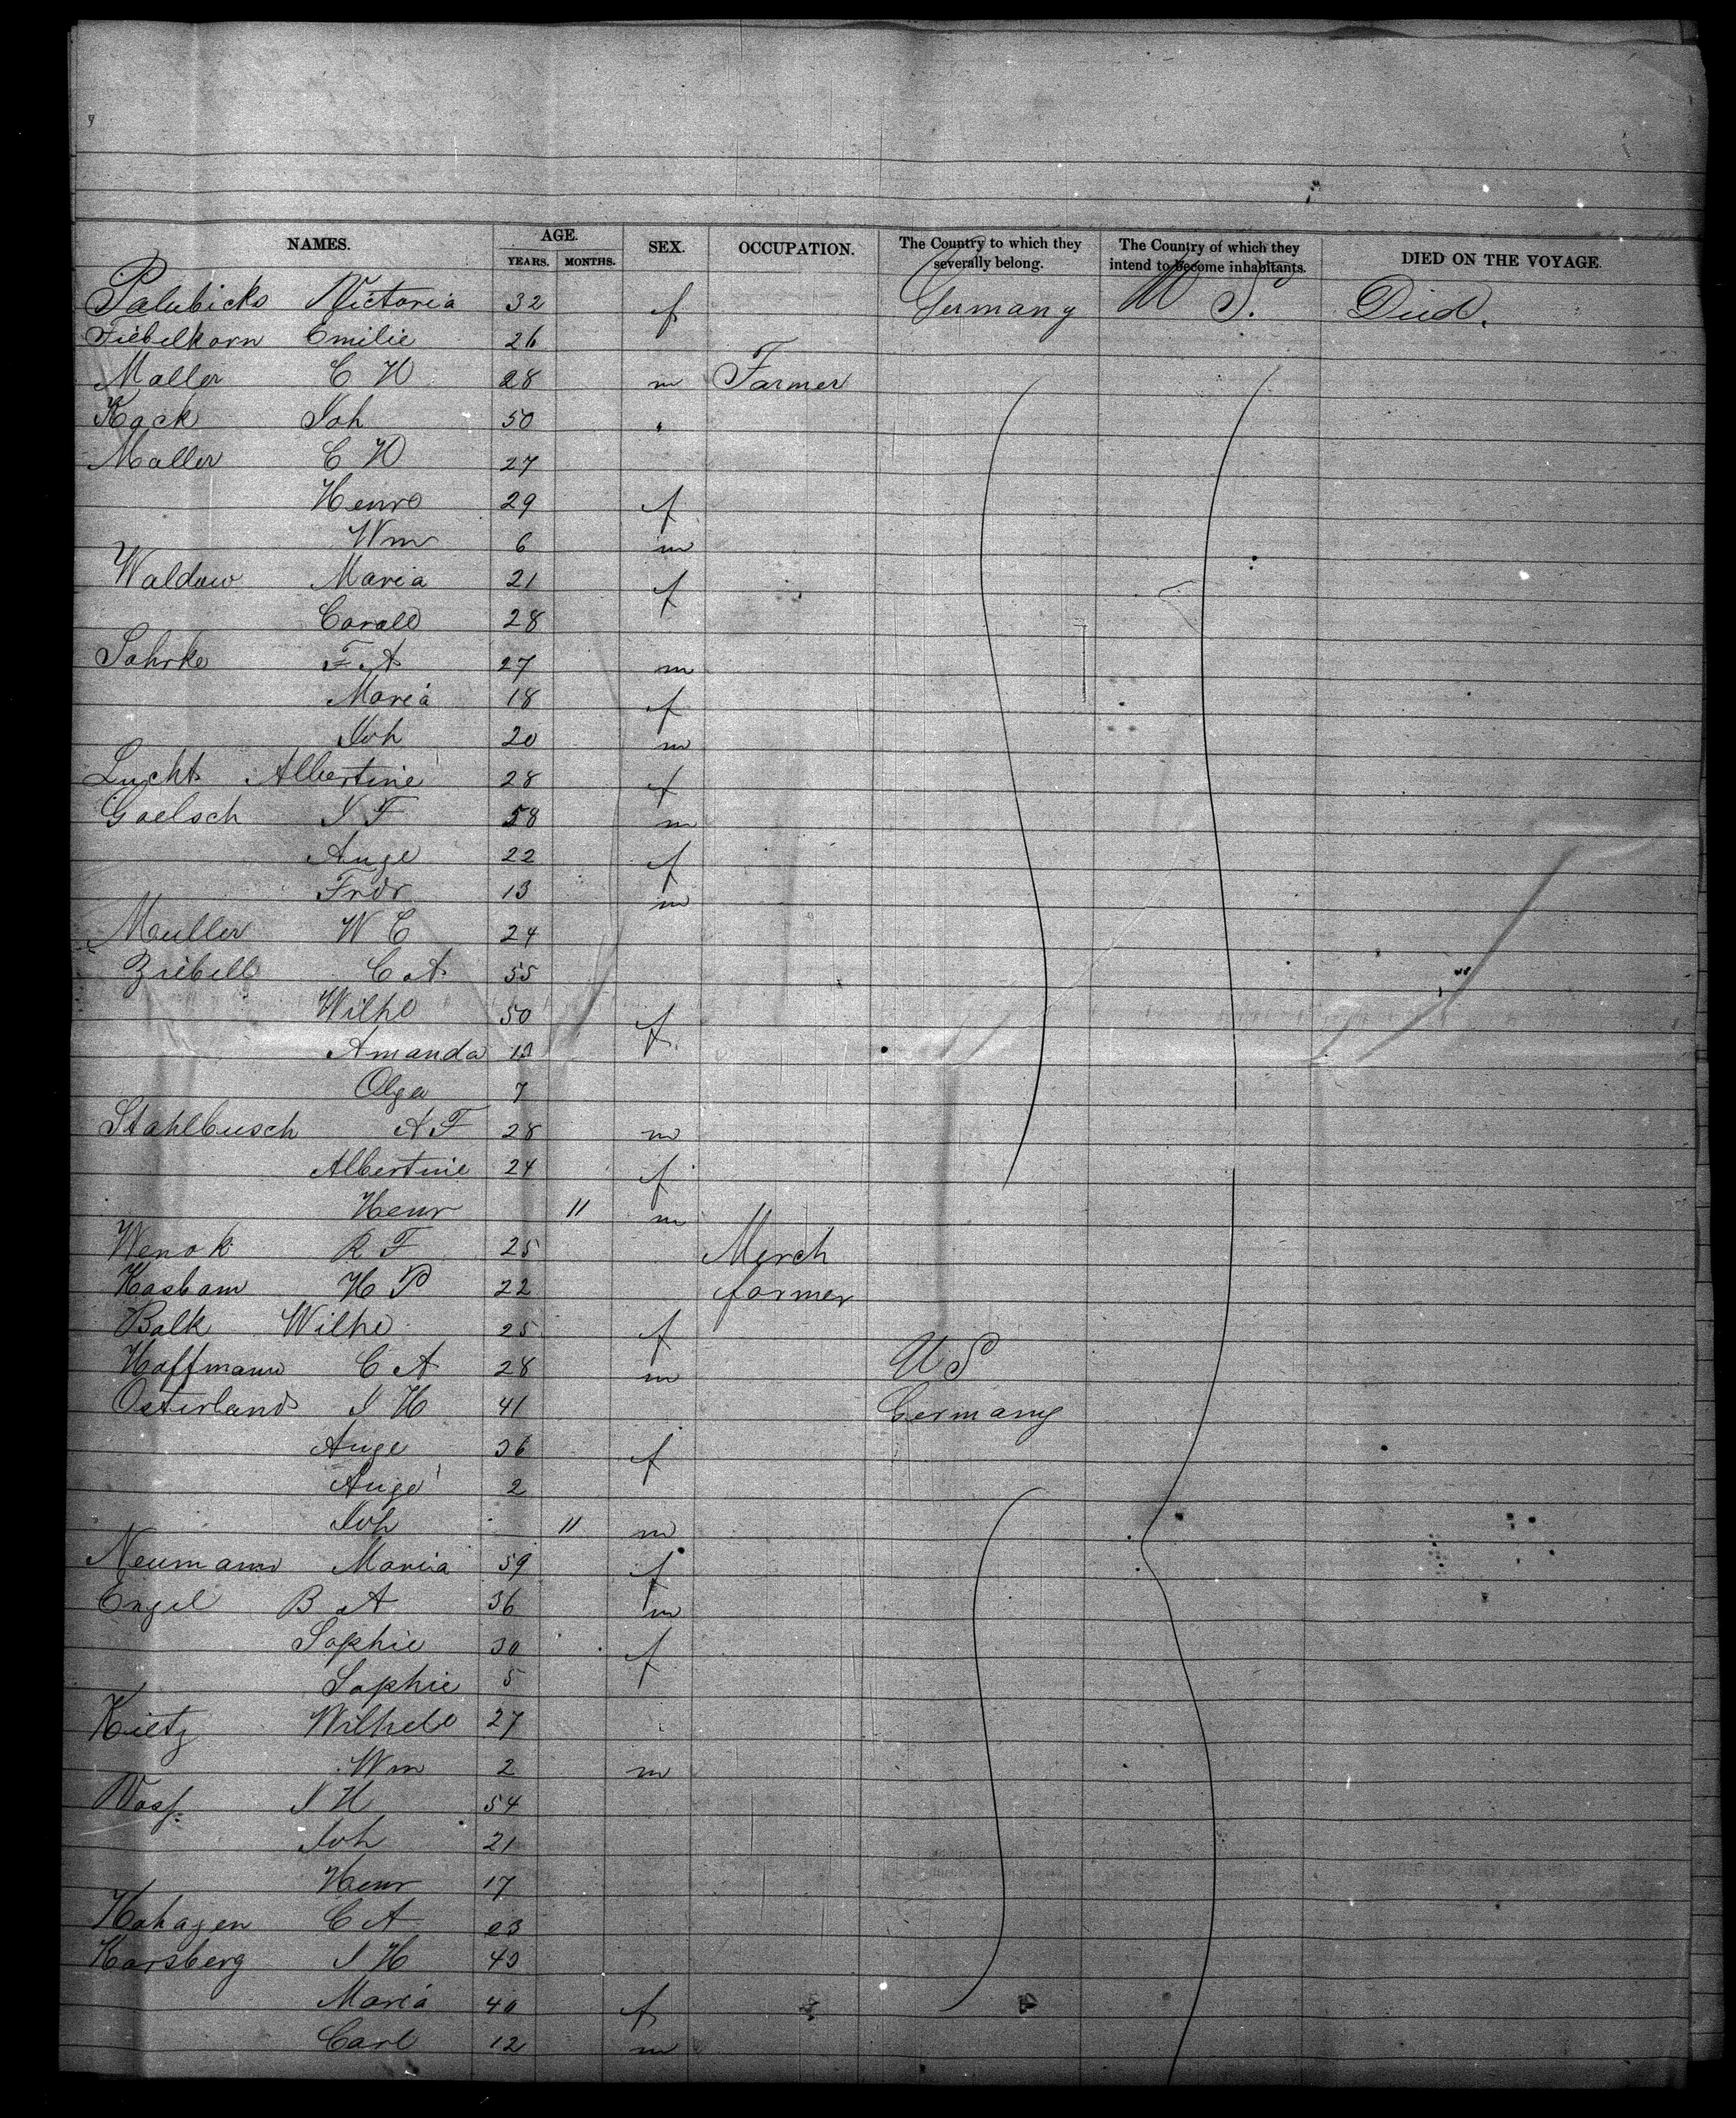 NAMES. AGE. SEX. OCCUPATION. The Country to which they severally belong. The Country of which they intend to become inhabitants. DIED ON THE VOYAGE.
YEARS. MONTHS.
Palubicks Victoria 32 f Germany U S. Died.
Fiebelkorn Emilie 26
Maller C W 28 m Farmer
Kock Joh 50
Maller C W 27
Henre 29 f
Wm 6 m
Waldow Maria 21 f
Carole 28
Sahrke F A 27 m
Maria 18 f
Joh 20 m
Lucht Albertine 28 f
Gaelsch J F 58 m
Auge 22 f
Fridr 13 m
Muller W C 24
Ziebell C A 55
Wilhe 50 f
Amanda
Olga 7
Stahlbusch A F 28 m
Albertine 24 f
Henr 11 m
Wenok R F 25 Merch
Kasbam H P 22 farmer
Balk Wilhe 25 f
Hoffmann C A 28 m U S
Osterland J H 41 Germany
Auge 36 f
Auge 2
Joh 11 m
Neumann Maria 59 f
Engel B A 36 m
Sophie 30 f
Sophie 5
Kietz Wilhele 27
Wm 2 m
J H 54
Joh 21
Henr 17
Hahagen C A 23
Karsberg J H 43
Maria 40 f
Carl 12 m